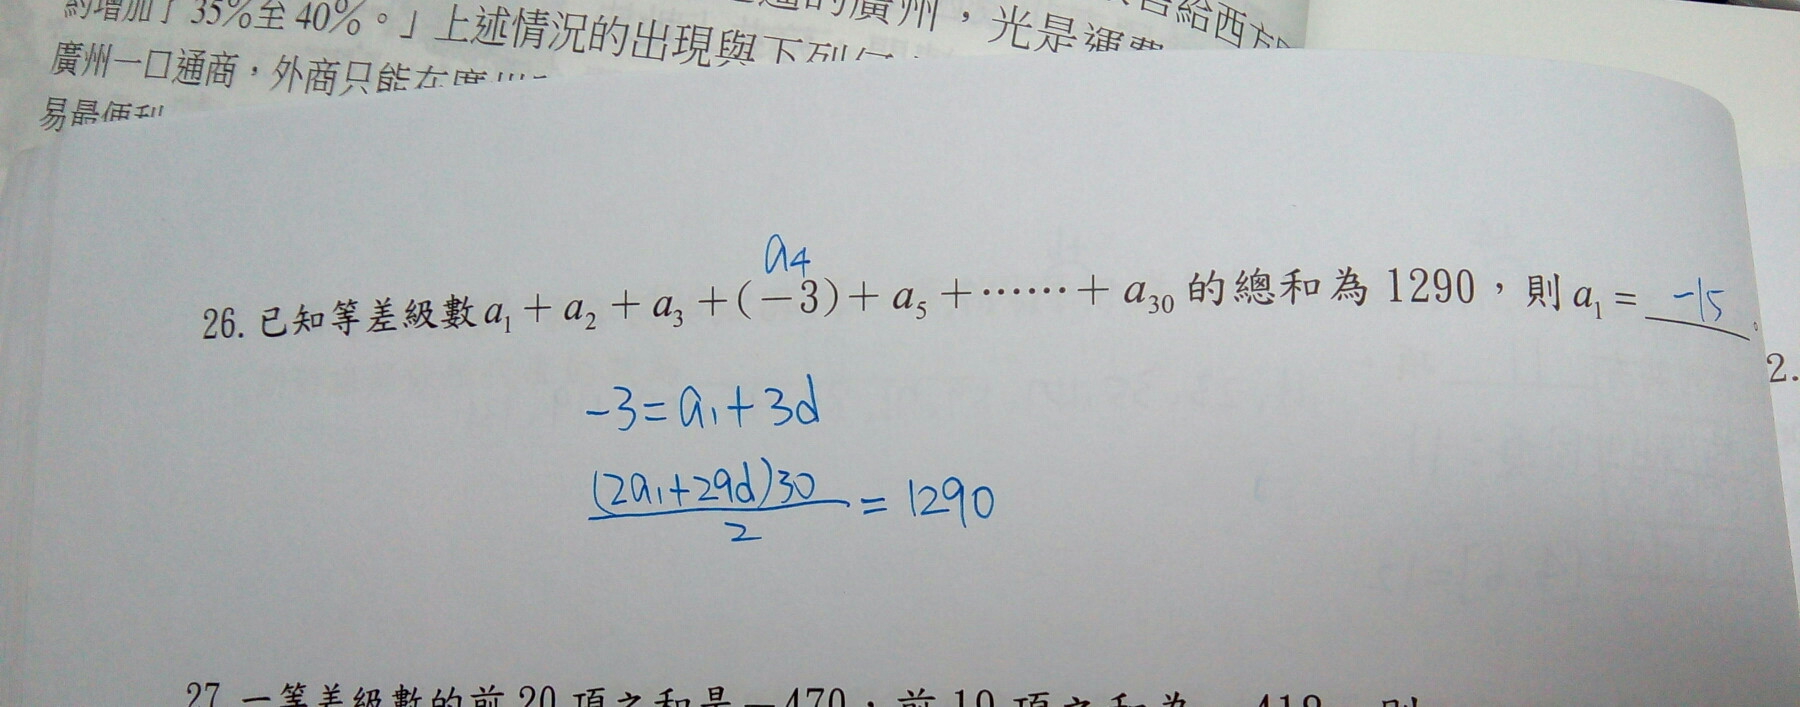 約增加了 35%至 40%。」上述情況的出現與下列
廣州，光是運費
給西方
廣州一口通商，外商只能在廣州
易最便利
a4
26. 已知等差級數 a₁ + a₂ + a₃ + (−3) + a₅ + ⋯⋯ + a₃₀ 的總和為 1290，則 a₁ = -15 。
2.
-3 = a₁ + 3d
(2a₁+29d)30
2
= 1290
27. 一等差級數的前 20 項之和是 −470，前 10 項之和為